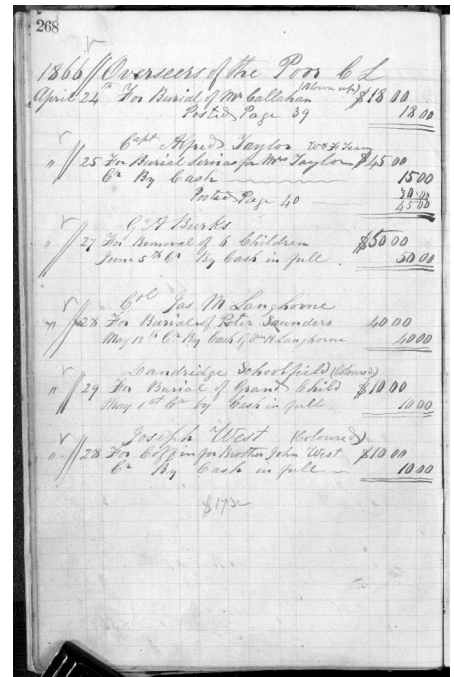 268
1866 Overseers of the Poor C L
April 24th For Burial of Mr Callahan (Blown up) $18 00
Posted Page 39 18 00
Capt Alfred Taylor
" 25 For Burial Servises for Mrs Taylor $45 00
Cr By Cash 15 00
30 00
Posted Page 40 45 00
G A Burks
" 27 For Removal of 6 Children $50 00
June 5th Cr By Cash in full 50 00
Col Jas M Langhorne
" 28 For Burial of Peter Saunders 40 00
May 12th Cr By Cash of Wm H Langhorne 40 00
Dandridge Schoolfield (Coloured)
" 29 For Burial of Grand Child $10.00
May 1st Cr by Cash in full 10 00
Joseph West (Coloured)
" 28 For Coffin for Mother John West $10 00
Cr By Cash in full 10 00
$173